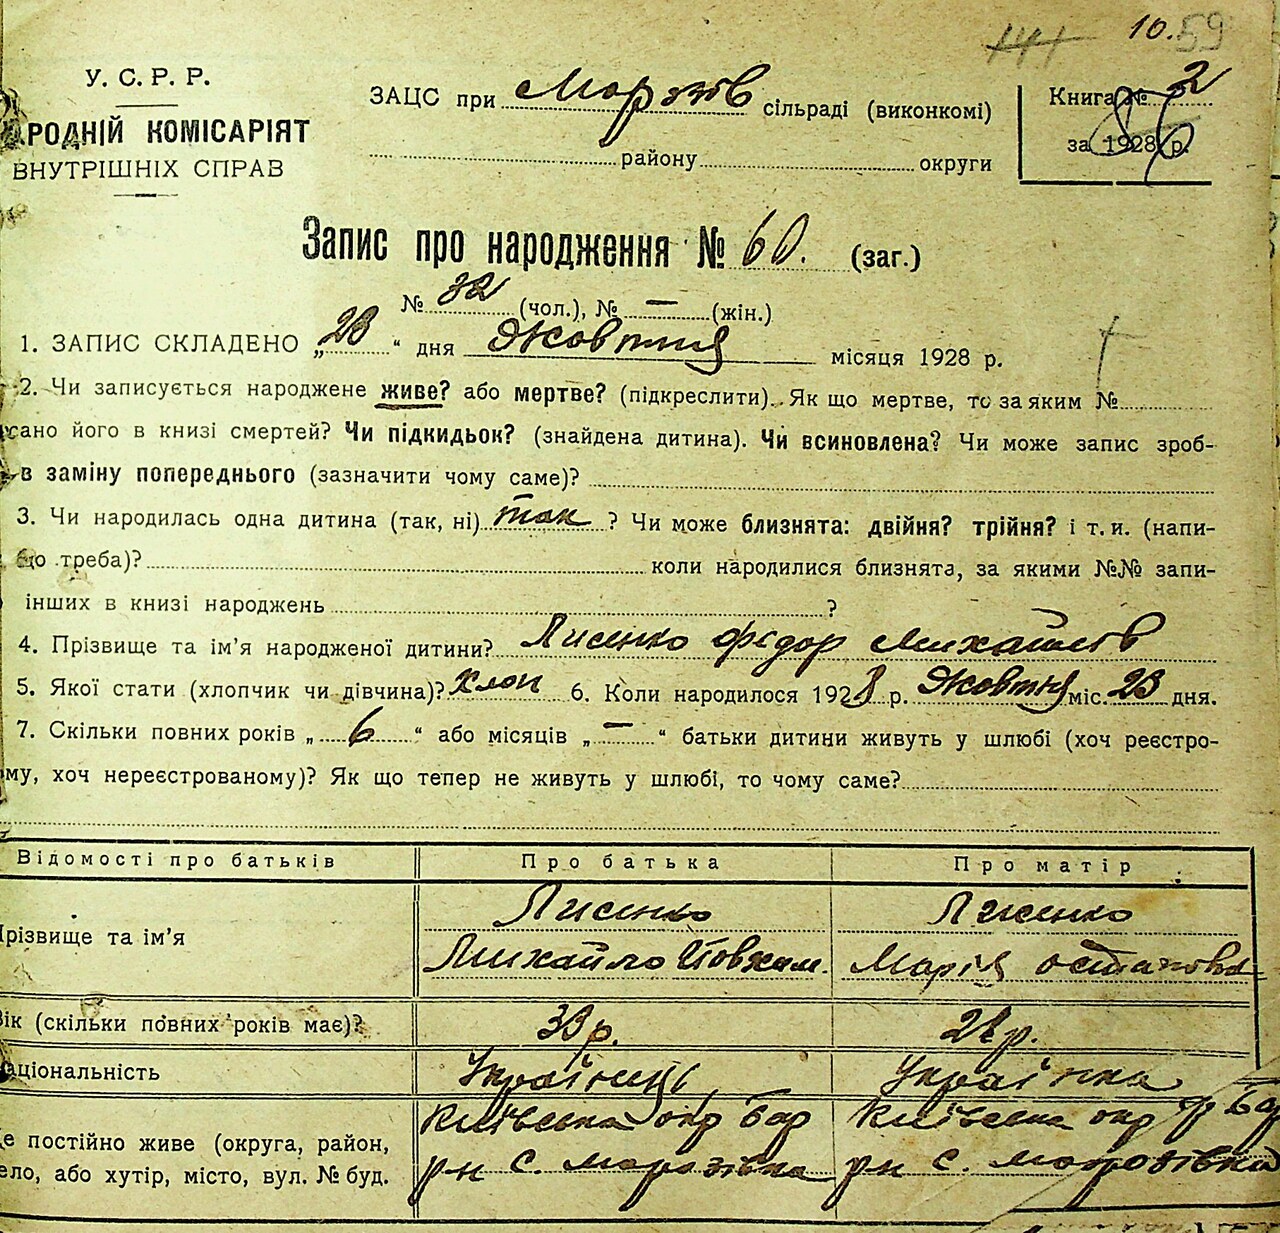 10. 59
141
У. С. Р. Р.
РОДНІЙ КОМІСАРІЯТ
ВНУТРІШНІХ СПРАВ
ЗАЦС при Морозів сільраді (виконкомі)
району округи
Книга № 2
за 1928 р.
Запис про народження № 60. (заг.)
№ 32 (чол.), № — (жін.)
1. ЗАПИС СКЛАДЕНО „23“ дня Жовтня місяця 1928 р.
2. Чи записується народжене живе? або мертве? (підкреслити). Як що мертве, то за яким №
сано його в книзі смертей? Чи підкидьок? (знайдена дитина). Чи всиновлена? Чи може запис зроб-
в заміну попереднього (зазначити чому саме)?
3. Чи народилась одна дитина (так, ні) так ? Чи може близнята: двійня? трійня? і т. и. (напи-
що треба)? коли народилися близнята, за якими №№ запи-
інших в книзі народжень ?
4. Прізвище та ім’я народженої дитини? Лисенко Федор Михайлів
5. Якої стати (хлопчик чи дівчина)? хлоп 6. Коли народилося 1928 р. Жовтня міс. 23 дня.
7. Скільки повних років „6“ або місяців „—“ батьки дитини живуть у шлюбі (хоч реєстро-
му, хоч нереєстрованому)? Як що тепер не живуть у шлюбі, то чому саме?
Відомості про батьків Про батька Про матір
Лисенко Лисенко
Прізвище та ім’я
Михайло Йовхим. Марія Остапова
Вік (скільки повних років має)? 39 р. р.
Національність Українець Українка
Київська окр Бар Київська окр Бар
е постійно живе (округа, район,
ело, або хутір, місто, вул. № буд. рн с. Морозівка рн с. Морозівка